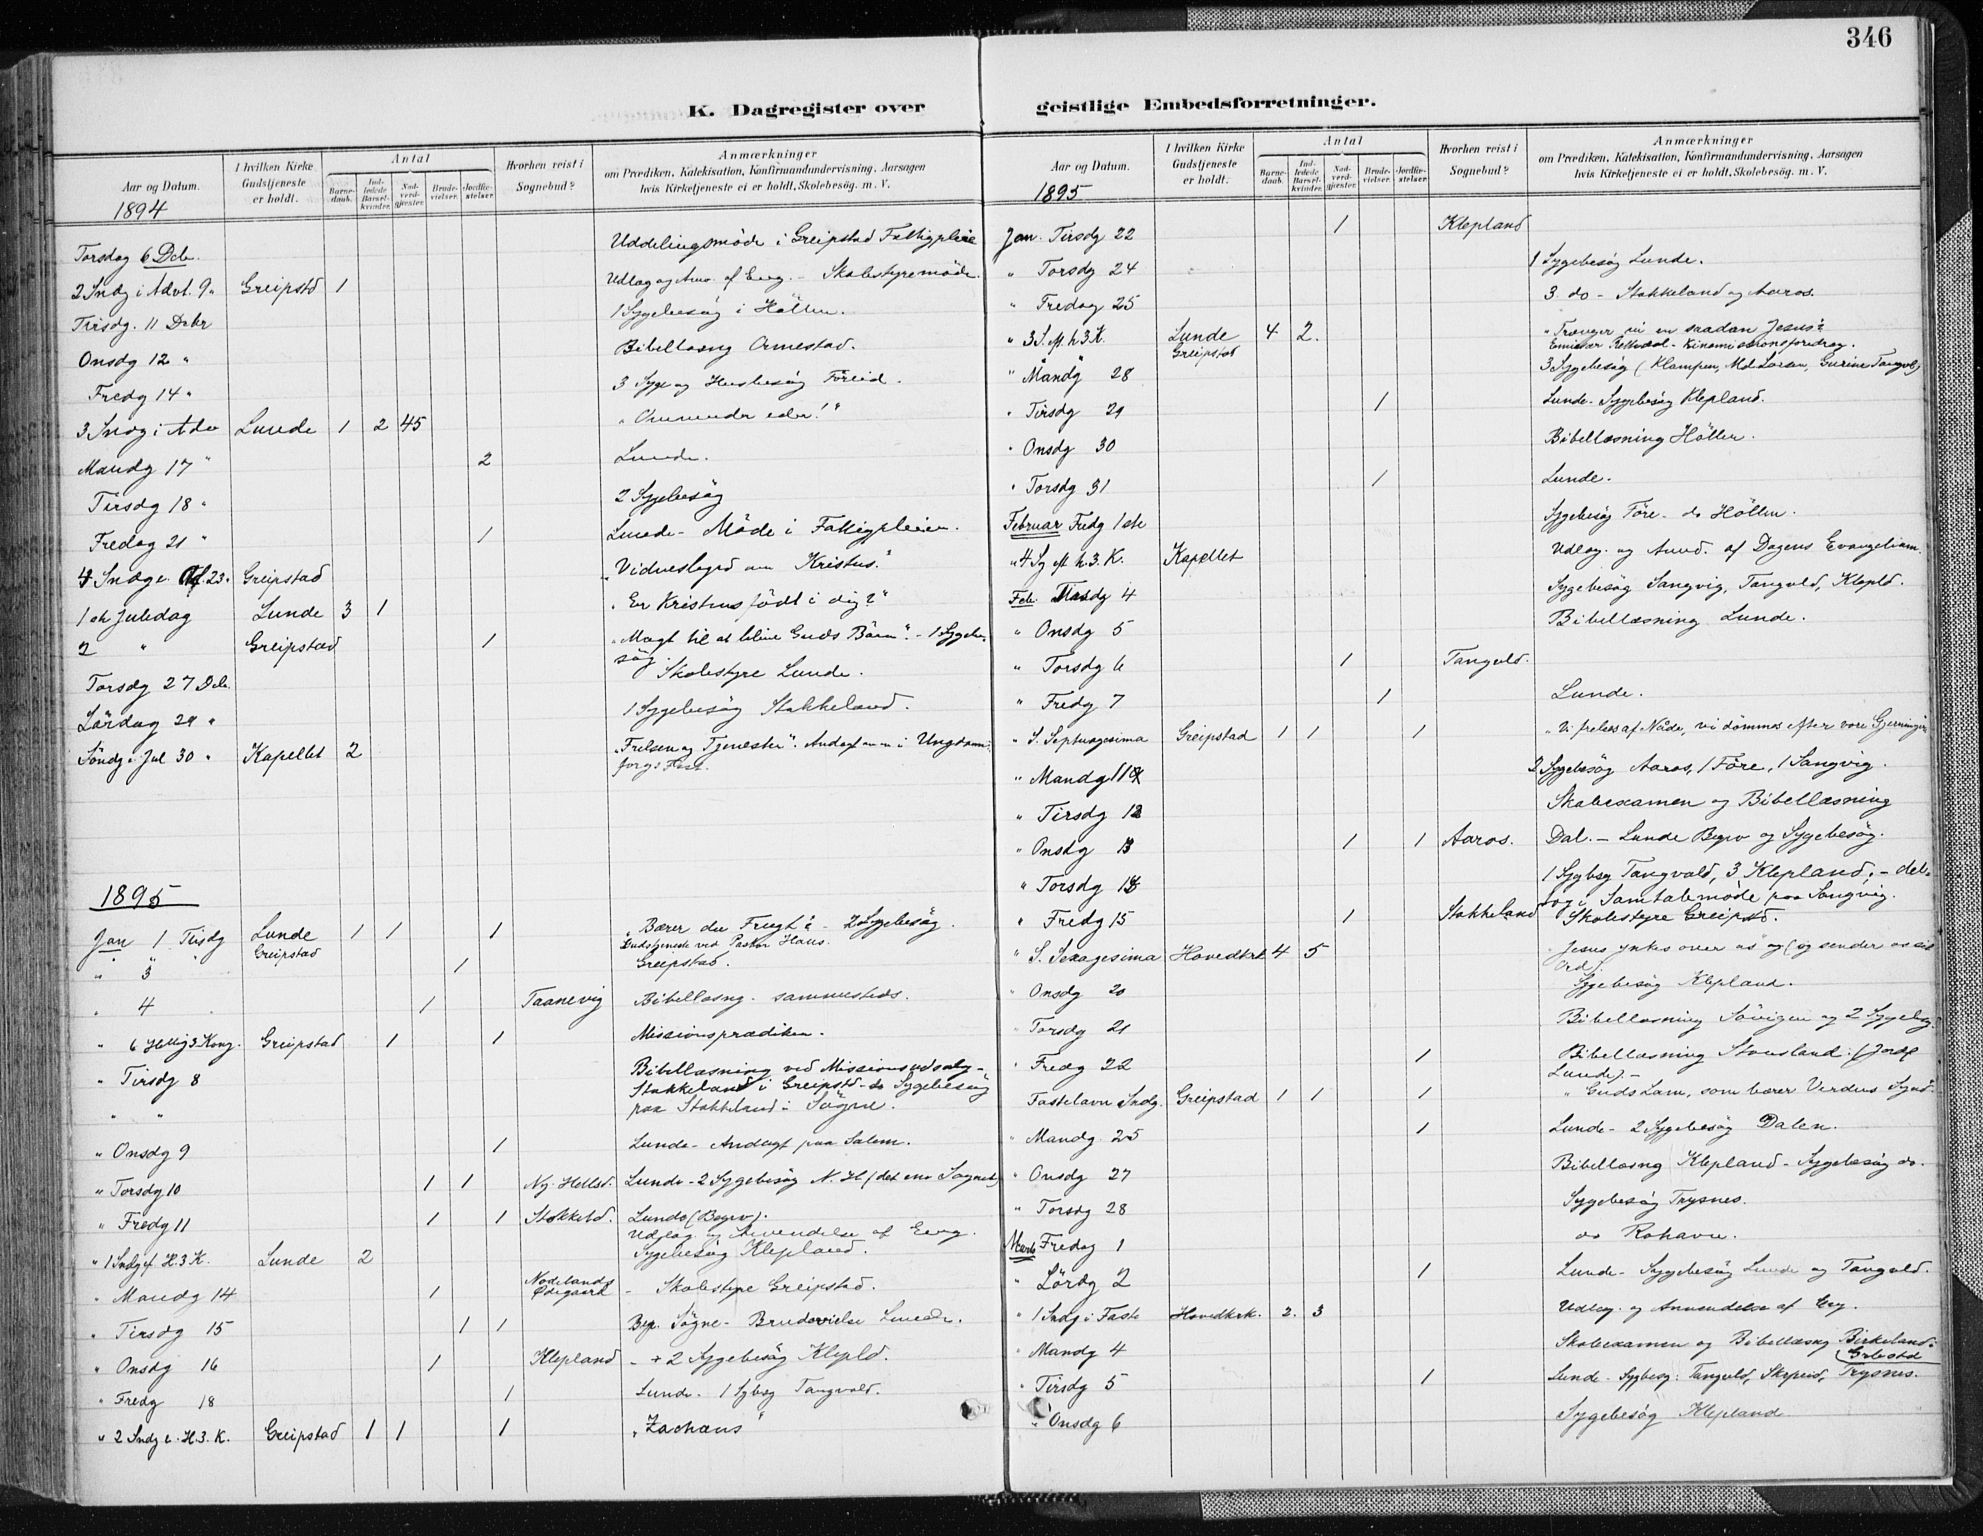 346
K. Dagregister over
geistlige Embedsforretninger.
Aar og Datum.
I hvilken Kirke Gudstjeneste er holdt.
Antal
Barnedaab.
Indledede Barselkvinder.
Nadverdgjester.
Brudevielser.
Jordfæstelser.
Hvorhen reist i Sognebud?
Anmærkninger
om Prædiken, Katekisation, Konfirmandundervisning, Aarsagen
hvis Kirketjeneste ei er holdt, Skolebesøg. m. V.
1894
Torsdag 6 Dcb. Uddelingsmöde i Greipstad Fattigpleie
2 Sndg i Advt. 9 " Greipstd 1 Udlæg og Anv. af Evg. - Skolestyremöde.
Tirsdg. 11 Debr 1 Sygebesög i Höllen.
Onsdg 12 " Bibellæsng Ormestad.
Fredg 14 " 3 Syge og Husbesög
3 Sndg i Adv Lunde 1 2 45 "Omvender eder!"
Mandg 17 " 2 Lunde.
Tirsdg 18 " 2 Sygebesög
Fredag 21 " 1 Lunde - Möde i Fattigpleien.
4 Sndg i 23. Greipstad "Vidnesbyrd om Kristus."
1ste Juledag Lunde 3 1 "Er Kristus födt i dig?"
2 " Greipstad 1 "Magt til at blive Guds Börn". - 1 Sygebesög.
Torsdg 27 Deb. Skolestyre Lunde.
Lördag 29 " 1 Sygebesög Stokkeland.
Söndg i Jul 30 " Kapellet 2 "Frelsen og Tjenesten". Andagt i Ungdom
1895
Jan 1 Tirsdg Lunde 1 1 1 "Bærer du Frugt? - 2 Sygebesög.
" " " Greipstad Gudstjeneste ved Pastor Hans.
" 3 1 Greipstad.
" 4 1 Taanevig Bibellæsng. sammesteds.
" 6 Hellig 3 Kong. Greipstad 1 1 Missionsprædiken.
" Tirsdg 8 Bibellæsning ved Missionsudsalg -
Stokkeland i Greipstd - do Sygebesög
" " paa Stokkeland i Sögne.
" Onsdg 9 1 Lunde - Andagt paa Salem.
" Torsdg 10 1 1 Ny-Hellesd. Lunde - 2 Sygebesög N. H
" Fredg 11 1 1 Stokkeld. Lunde (Begrv).
" 1 Sndg ef. H. 3 K. Lunde 2 Udlæg. og Anvendelse af Evg.
Sygebesög Klepland.
" Mandg 14 1 Nodelands Ödegaard - Skolestyre Greipstad.
" Tirsdg 15 1 1 Begr. Sögne - Brudevielse Lunde.
" Onsdg 16 1 Klepland - + 2 Sygebesög Klepld.
" Fredg 18 1 Lunde - 1 Sybsg Tangvald.
" 2 Sndg e. H. 3. K. Greipstad 1 1 1 "Zachæus"
Aar og Datum.
I hvilken Kirke Gudstjeneste er holdt.
Antal
Barnedaab.
Indledede Barselkvinder.
Nadverdgjester.
Brudevielser.
Jordfæstelser.
Hvorhen reist i Sognebud?
Anmærkninger
om Prædiken, Katekisation, Konfirmandundervisning, Aarsagen
hvis Kirketjeneste ei er holdt, Skolebesög. m. V.
1895
Jan. Tirsdg 22 1 Klepland
" Torsdg 24 1 Sygebesög Lunde.
" Fredag 25 3 do - Stokkeland og Aaros.
" 3 S. eft. h 3 K. Lunde 4 2. "Trænger vi en saadan Jesus?
Greipstad Emissær - Kinamissionsforedrag.
" Mandg 28 3 Sygebesög (Klampen, Gurine Tangvd)
" Tirsdg 29 1 Lunde - Sygebesög Klepland.
" Onsdg 30 Bibellæsning Höllen.
" Torsdg 31 1 Lunde.
Februar Fredg 1ste Sygebesög Före - do Höllen.
" 4 Sg eft h. 3. K. Kapellet Udlæg. og Anvd. af Dagens Evangelium.
Feb. Mandg 4 Sygebesög Langvig, Tangvald, Klepld.
" Onsdg 5 Bibellæsning Lunde.
" Torsdg 6 1 Tangvald.
" Fredg 7 1 Lunde.
" S. Septuagesima Greipstad 1 1 1 "Vi frelses af Nåde, vi dömmes efter vore Gjerninger
" Mandg 11 2 Sygebesög Aaros, 1 Före, 1 Langvig.
" Tirsdg 12 Skolexamen og Bibellæsning
" Onsdg 13 1 1 Aaros. Dal. - Lunde Begrv og Sygebesög.
" Torsdg 14 1 Sygbsg Tangvald, 3 Klepland, - deltog i Samtalemöde paa Langvig.
" Fredg 15 1 Stokkeland Skolestyre Greipstd.
" S. Sexagesima Hovedkrk 4 5 Jesus ynkes over os og (og sender os sit Ord).
" Onsdg 20 Sygebesög Klepland.
" Torsdg 21 Bibellæsning Sövigen og 2 Sygebsg.
" Fredg 22 1 Bibellæsning Stousland: (Jordf Lunde) -
Fastelavn Sndg. Greipstad 1 1 1 "Guds Lam, som bærer Verdens Synd."
" Mandg 25 1 Lunde - 2 Sygebesög Dalen.
" Onsdg 27 Bibellæsng Klepland - Sygebesög do.
" Torsdg 28 Sygebesög Trysnes.
Marts Fredag 1 do Rohavn.
" Lördg 2 1 Lunde - Sygebesög Lunde og Tangvald.
" 1 Sndg i Faste Hovedkrk. 2. 3 Udlæg. og Anvendelse af Evg.
" Mandg 4 Skolexamen og Bibellæsng Birkeland:
" Tirsdg 5 1 Lunde - Sygbesg: Tangvald, Trysnes.
" Onsdg 6 Sygebesög Klepland